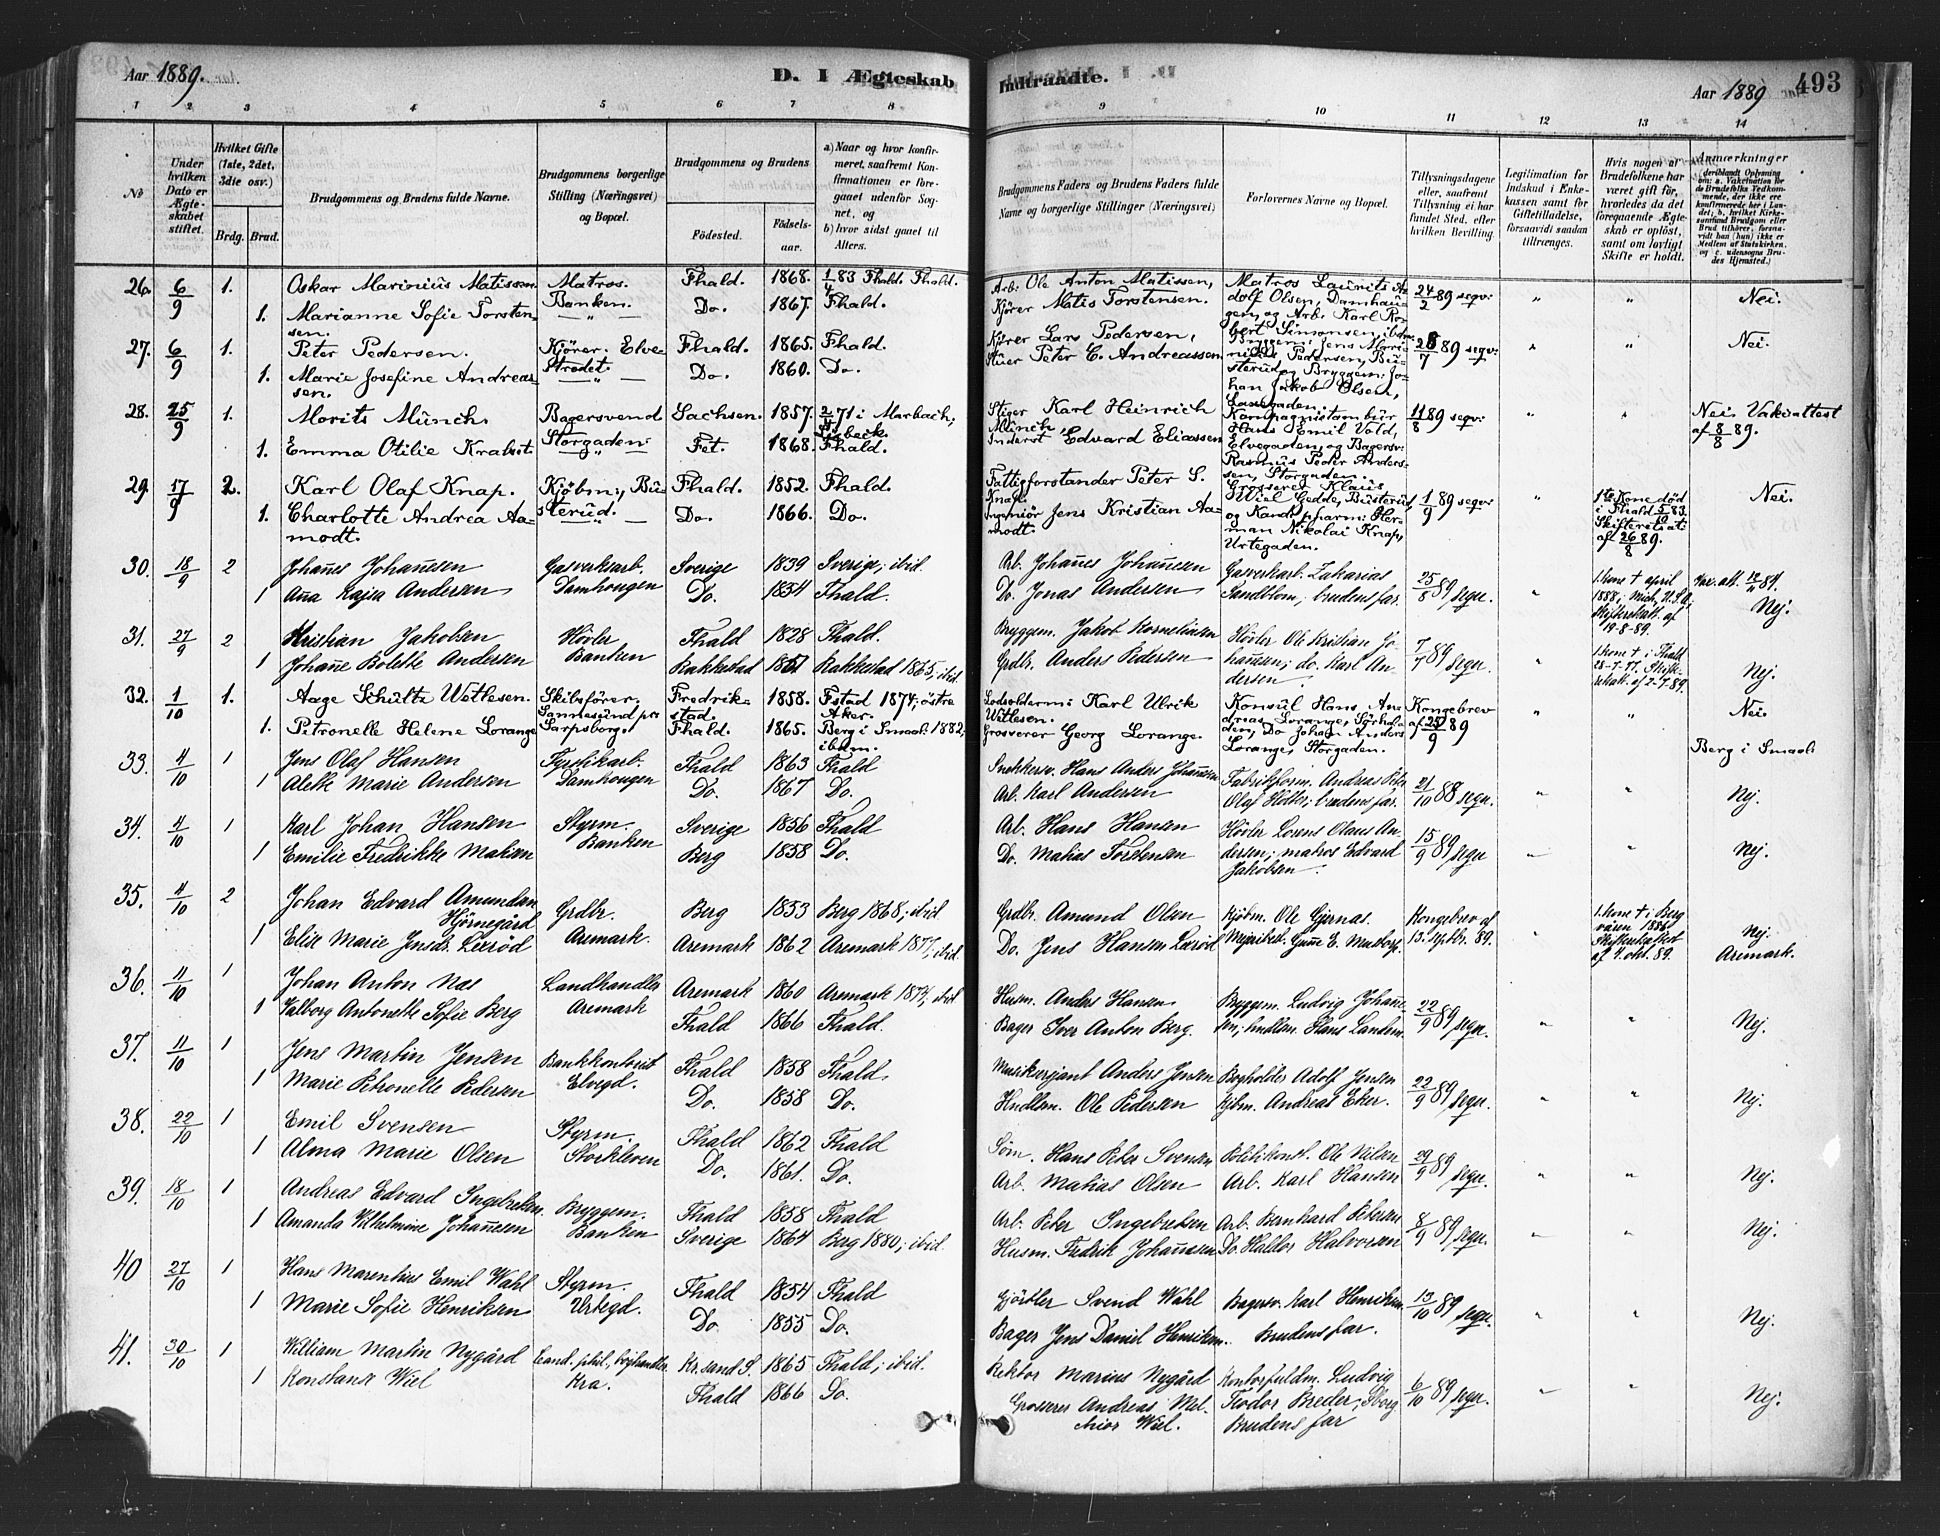 Aar 1889. D. I Ægteskab
1 2 3 4 5 6 7 8
№
Under hvilken Dato er Ægteskabet stiftet.
Hvilket Gifte (1ste, 2det, 3die osv.)
Brdg. Brud.
Brudgommens og Brudens fulde Navne.
Brudgommens borgerlige Stilling (Næringsvei) og Bopæl.
Brudgommens og Brudens
Fødested. Fødselsaar.
a) Naar og hvor konfirmeret, saafremt Konfirmationen er foregaaet udenfor Sognet, og
b) hvor sidst gaaet til Alters.
26. 6/9 1. Oskar Marinius Matissen Matros. Fhald. 1868. 1/4 83 Fhald. Fhald.
1. Marianne Sofie Torstensen. Banken. Do. 1867. Fhald.
27. 6/9 1. Peter Pedersen. Kjører. Elve- Fhald. 1865. Fhald.
1. Marie Josefine Andreassen. Strødet. Do. 1860. Do.
28. 25/9 1. Morits Münch. Bagersvend Sachsen. 1857. 71 i Marbach,
1. Emma Otilie Krabset. Storgaden. Fet. 1868. Fhald.
29. 17/9 2. Karl Olaf Knap. Kjøbm., Bu- Fhald. 1852. Fhald.
1. Charlotte Andrea Aamodt. sterud. Do. 1866. Do.
30. 18/9 2 Johañes Johañesen Gasverksarb. Sverige 1839 Sverige; ibid.
1 Aña Kajsa Andersen Damhougen Do. 1854 Fhald.
31. 27/9 2 Kristian Jakobsen Høvler Fhald 1828 Fhald.
1 Johañe Bolette Andersen Banken Rakkestad 1851 Rakkestad 1865; ibid
32. 1/10 1. Aage Schultz Wetlesen. Skibsfører. Fredrikstad. 1858. Fstad 1874; østre Aker.
1. Petronelle Helene Lorange Sannesund pr. Sarpsborg. Fhald. 1865. Berg i Smaal. 1882; ibdm.
33. 4/10 1 Jens Olaf Hansen Fyrstikarb. Fhald 1863 Fhald
1 Alette Marie Andersen Damhougen Do. 1867 Do.
34. 4/10 1 Karl Johan Hansen Styrm. Sverige 1856 Fhald
1 Emilie Fredrikke Matisen Banken Berg 1858 Do.
35. 4/10 2 Johan Edvard Amundsen Hjørnegård Grdbr. Berg 1853 Berg 1868; ibid
1 Elise Marie Jensd. Lierød Aremark. Aremark 1862 Aremark 1877; ibid.
36. 11/10 1 Johan Anton Næs Landhandler Aremark 1860 Aremark 1874; ibid
1 Valborg Antonette Sofie Berg Aremark Fhald 1866 Fhald.
37. 11/10 1 Jens Martin Jensen Bankkontorist Fhald 1858 Fhald.
1 Marie Petronelle Pedersen Elvegd. Do. 1858 Do.
38. 22/10 1 Emil Svensen Styrm. Fhald 1862 Fhald
1 Alma Marie Olsen Storkleven Do. 1861. Do.
39. 18/10 1 Andreas Edvard Ingebretsen. Bryggem. Fhald 1858 Fhald
1 Amanda Vilhelmine Johañesen Banken Sverige 1864 Berg 1880; ibid.
40 27/10 1 Hans Marentius Emil Wahl Styrm. Fhald 1854 Fhald
1 Marie Sofie Henriksen Urtegd. Do 1855 Do.
41. 30/10 1 William Martin Nygård Cand. phil., boghandler Kr.sand S. 1865 Fhald; ibid.
1 Konstanse Wiel Kra. Fhald 1866 Do.
Indtraadte. Aar 1889 493
9 10 11 12 13 14
Brudgommens Faders og Brudens Faders fulde Navne og borgerlige Stillinger (Næringsvei)
Forlovernes Navne og Bopæl.
Tillysningsdagene eller, saafremt Tillysning ei har fundet Sted, efter hvilken Bevilling.
Legitimation for Indskud i Enkekassen samt for Giftetilladelse, forsaavidt saadan tiltrænges.
Hvis nogen af Brudefolkene har været gift før, hvorledes da det foregaaende Ægteskab er opløst, samt om lovligt Skifte er holdt.
Anmærkninger
Arb. Ole Anton Matissen, Matros Laurits Adolf Olsen, Damhaugen, og Arb. Karl Robert Simonsen, ibdm. 24/2 89 seqv: " " Nei.
Kjører Matis Torstensen.
Kjører Lars Pedersen, Bryggem. Jens Marinius Pedersen, Busterud og Bryggem. Johan Jakob Olsen, 7 89 seqv: " " Nei.
Stuer Peter C. Andreassen
Stiger Karl Heinrich Münch. Hans Emil Vold, Elvegaden, og Bagersv. Rasmus Peder Anderssen, Storgaden. 11/8 89 seqv: " Nei. Vakcattest af 8/8 89.
Inderst Edvard Eliassen
Fattigforstander Peter S. Knap. Grosserer Klaus Wiel Gedde, Busterud, og Kand. pharm. Herman Nikolai Knap, Urtegaden. 1/9 89 seqv: " 1ste Kone død i Fhald 83. Skifteretsatt. af 26/8 89. Nei.
Ingeniør Jens Kristian Aamodt.
Arb. Johañes Johañesen Gasverkarb. Zakarias Sandblom; brudens far. 25/8 89 seqv. " 1. kone † april 1888; Mich, U.S.A; skifterettsatt. af 19-8-89. Vac. att. 89. Nej.
Do. Jonas Andersen
Bryggem. Jakob Korneliusen Høvler Ole Kristian Johañsen; do. Karl Andersen. 7/7 89 seqv. " 1. kone † i Fhald att. af 2-7-89. Nej.
Grdbr. Anders Pedersen
Lodsolderm: Karl Ulrik Wetlesen. Konsul Hans Andreas Lorange, Sørhalden, Do Johan Anders Lorange, Storgaden. Kongebrev af 25/9 89 " " Nei. Berg i Smaal.
Grosserer Georg Lorange.
Snekkersv. Hans Anders Johañesen Fabrikform. Andreas Peter Olaf Holter; brudens far. 21/10 88 seqv. " " Nej.
Arb. Karl Andersen
Arb. Hans Hansen Høvler Lorens Olaus Andersen; matros Edvard Jakobsen. 15/9 89 seqv. " " Nej.
Do. Mathias Torstensen
Grdbr. Amund Olsen Kjøbm. Ole Gjernæs. Kongebrev af 13. septbr. 89. 1. kone † i Berg våren 188 Skifterettsattest af 4. okt. 89. Nej. Aremark.
Do. Jens Hansen Lierød
Husm. Anders Hansen Byggem. Ludvig Johañesen; hndlsm. Hans Landem. 22/9 89 seqv. " " Nej.
Bager Iver Anton Berg.
Musikersjant Anders Jensen Bogholder Adolf Jensen 22/9 89 seqv. " " Nej.
Hndlsm. Ole Pedersen Kjbm. Andreas Eker.
Søm. Hans Peter Svensen Politikonst. Ole Nilsen 29/9 89 seqv. " " Nej.
Arb. Mathias Olsen Arb. Karl Hansen
Arb. Peter Ingebretsen Arb. Bernhard Petersen 8/9 89 seqv. " " Nej.
Husm. Fredrik Johañesen Do. Haldor Halvorsen
Gjørtler Svend Wahl Bagersv. Karl Henriksen. 13/10 89 seqv. " " Nej.
Bager Jens Daniel Henriksen. Brudens far.
Rektor Marius Nygård Kontorfuldm. Ludvig Teodor Breder, Storg 6/10 89 seqv. " " Nej.
Grosserer Andreas Melchior Wiel. Brudens far